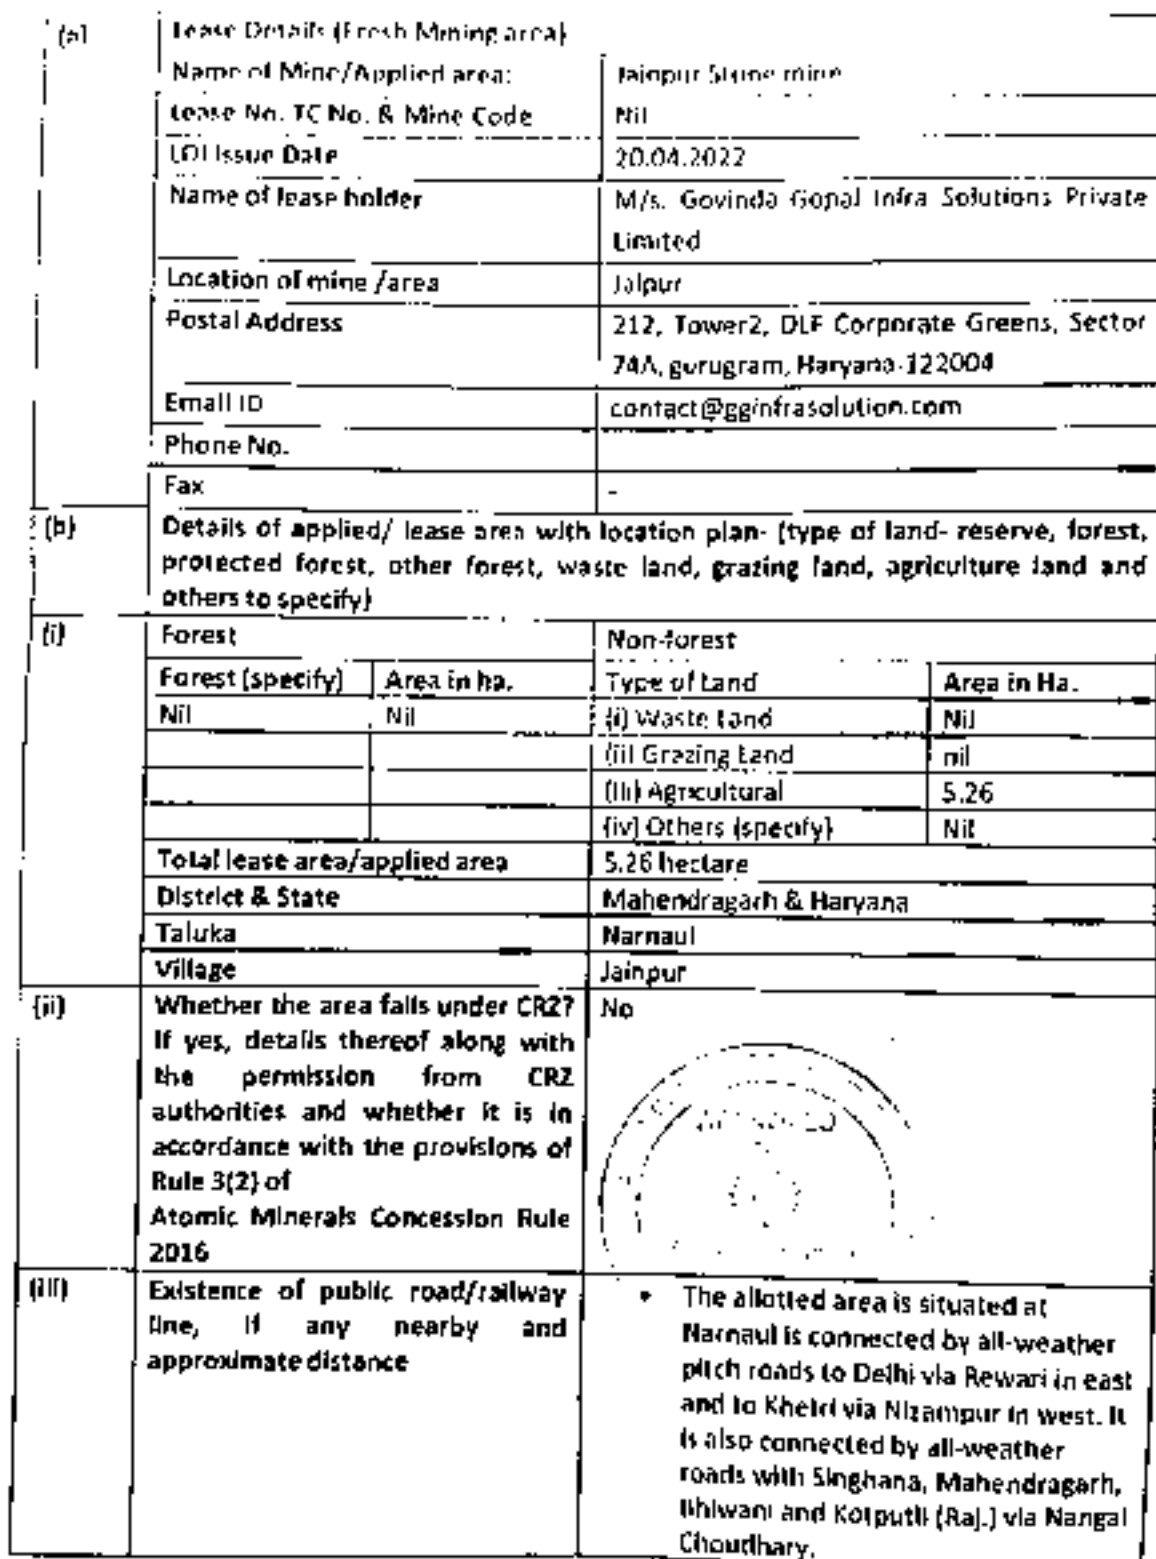 (a) Lease Details (Fresh Mining area)
Name of Mine/Applied area: Jainpur Stone mine
Lease No. TC No. & Mine Code Nil
LOI Issue Date 20.04.2022
Name of lease holder M/s. Govinda Gopal Infra Solutions Private
Limited
Location of mine /area Jaipur
Postal Address 212, Tower2, DLF Corporate Greens, Sector
74A, gurugram, Haryana-122004
Email ID contact@gginfrasolution.com
Phone No.
Fax -
(b) Details of applied/ lease area with location plan- (type of land- reserve, forest,
protected forest, other forest, waste land, grazing land, agriculture land and
others to specify)
(i) Forest Non-forest
Forest (specify) Area in ha. Type of Land Area in Ha.
Nil Nil (i) Waste Land Nil
(ii) Grazing Land nil
(iii) Agricultural 5.26
(iv) Others (specify) Nil
Total lease area/applied area 5.26 hectare
District & State Mahendragarh & Haryana
Taluka Narnaul
Village Jainpur
(ii) Whether the area falls under CRZ? No
If yes, details thereof along with
the permission from CRZ
authorities and whether it is in
accordance with the provisions of
Rule 3(2) of
Atomic Minerals Concession Rule
2016
(iii) Existence of public road/railway • The allotted area is situated at
line, if any nearby and Narnaul is connected by all-weather
approximate distance pitch roads to Delhi via Rewari in east
and to Khetri via Nizampur in west. It
is also connected by all-weather
roads with Singhana, Mahendragarh,
Bhiwani and Kotputli (Raj.) via Nangal
Choudhary.